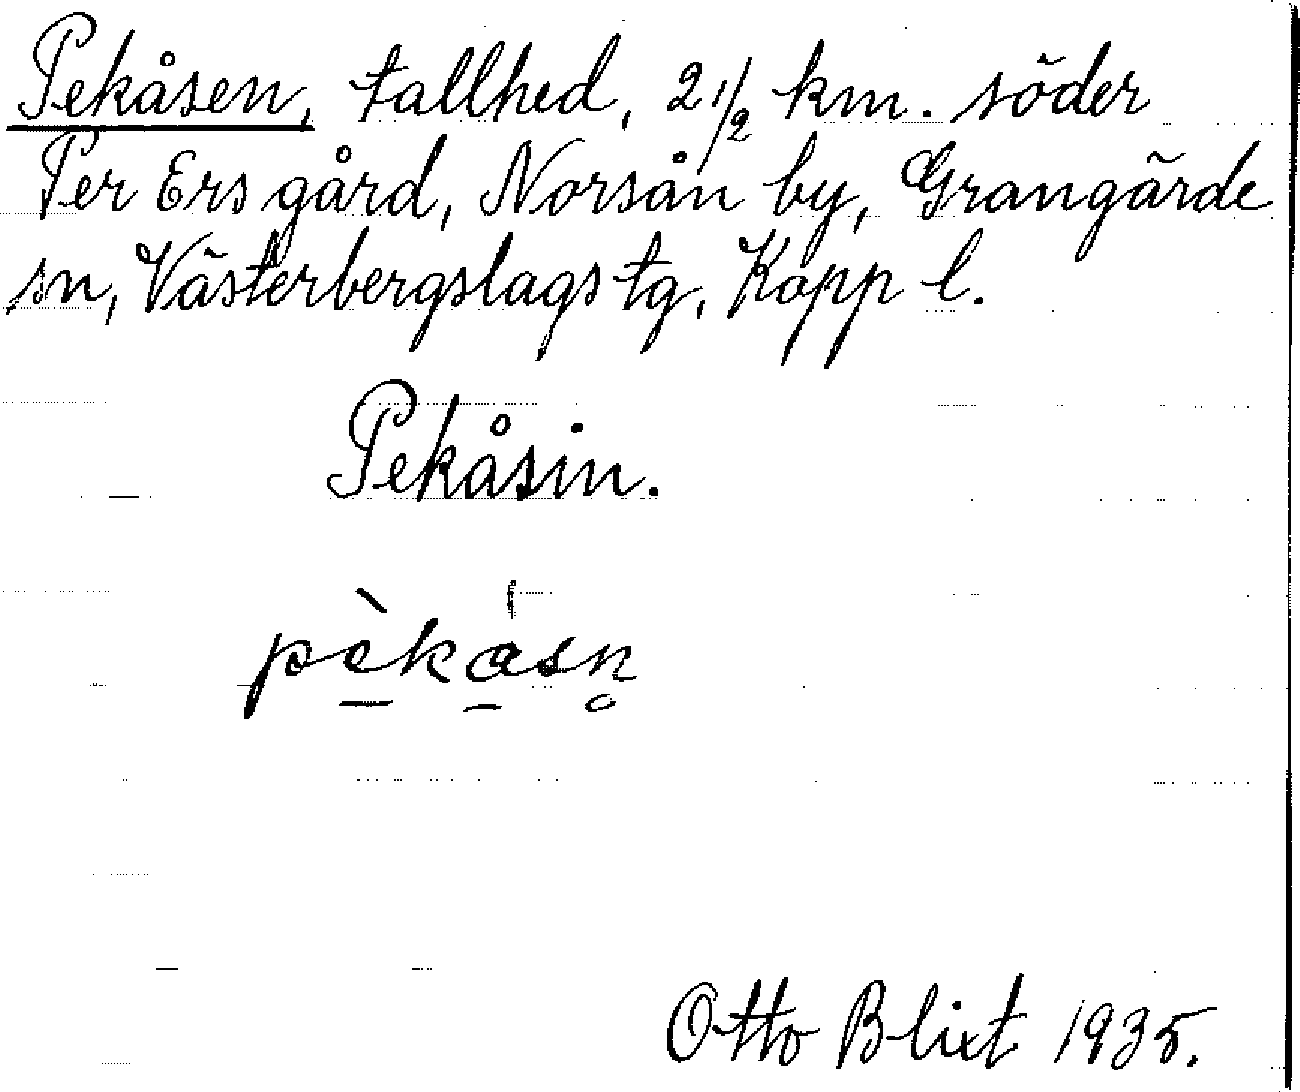 Pekåsen, tallhed, 2 1/2 km. söder
Per Ers gård, Norsån by, Grangärde
sn, Västerbergslags tg, Kopp l.
Pekåsin.
pèkåsn̥
Otto Blixt 1935.